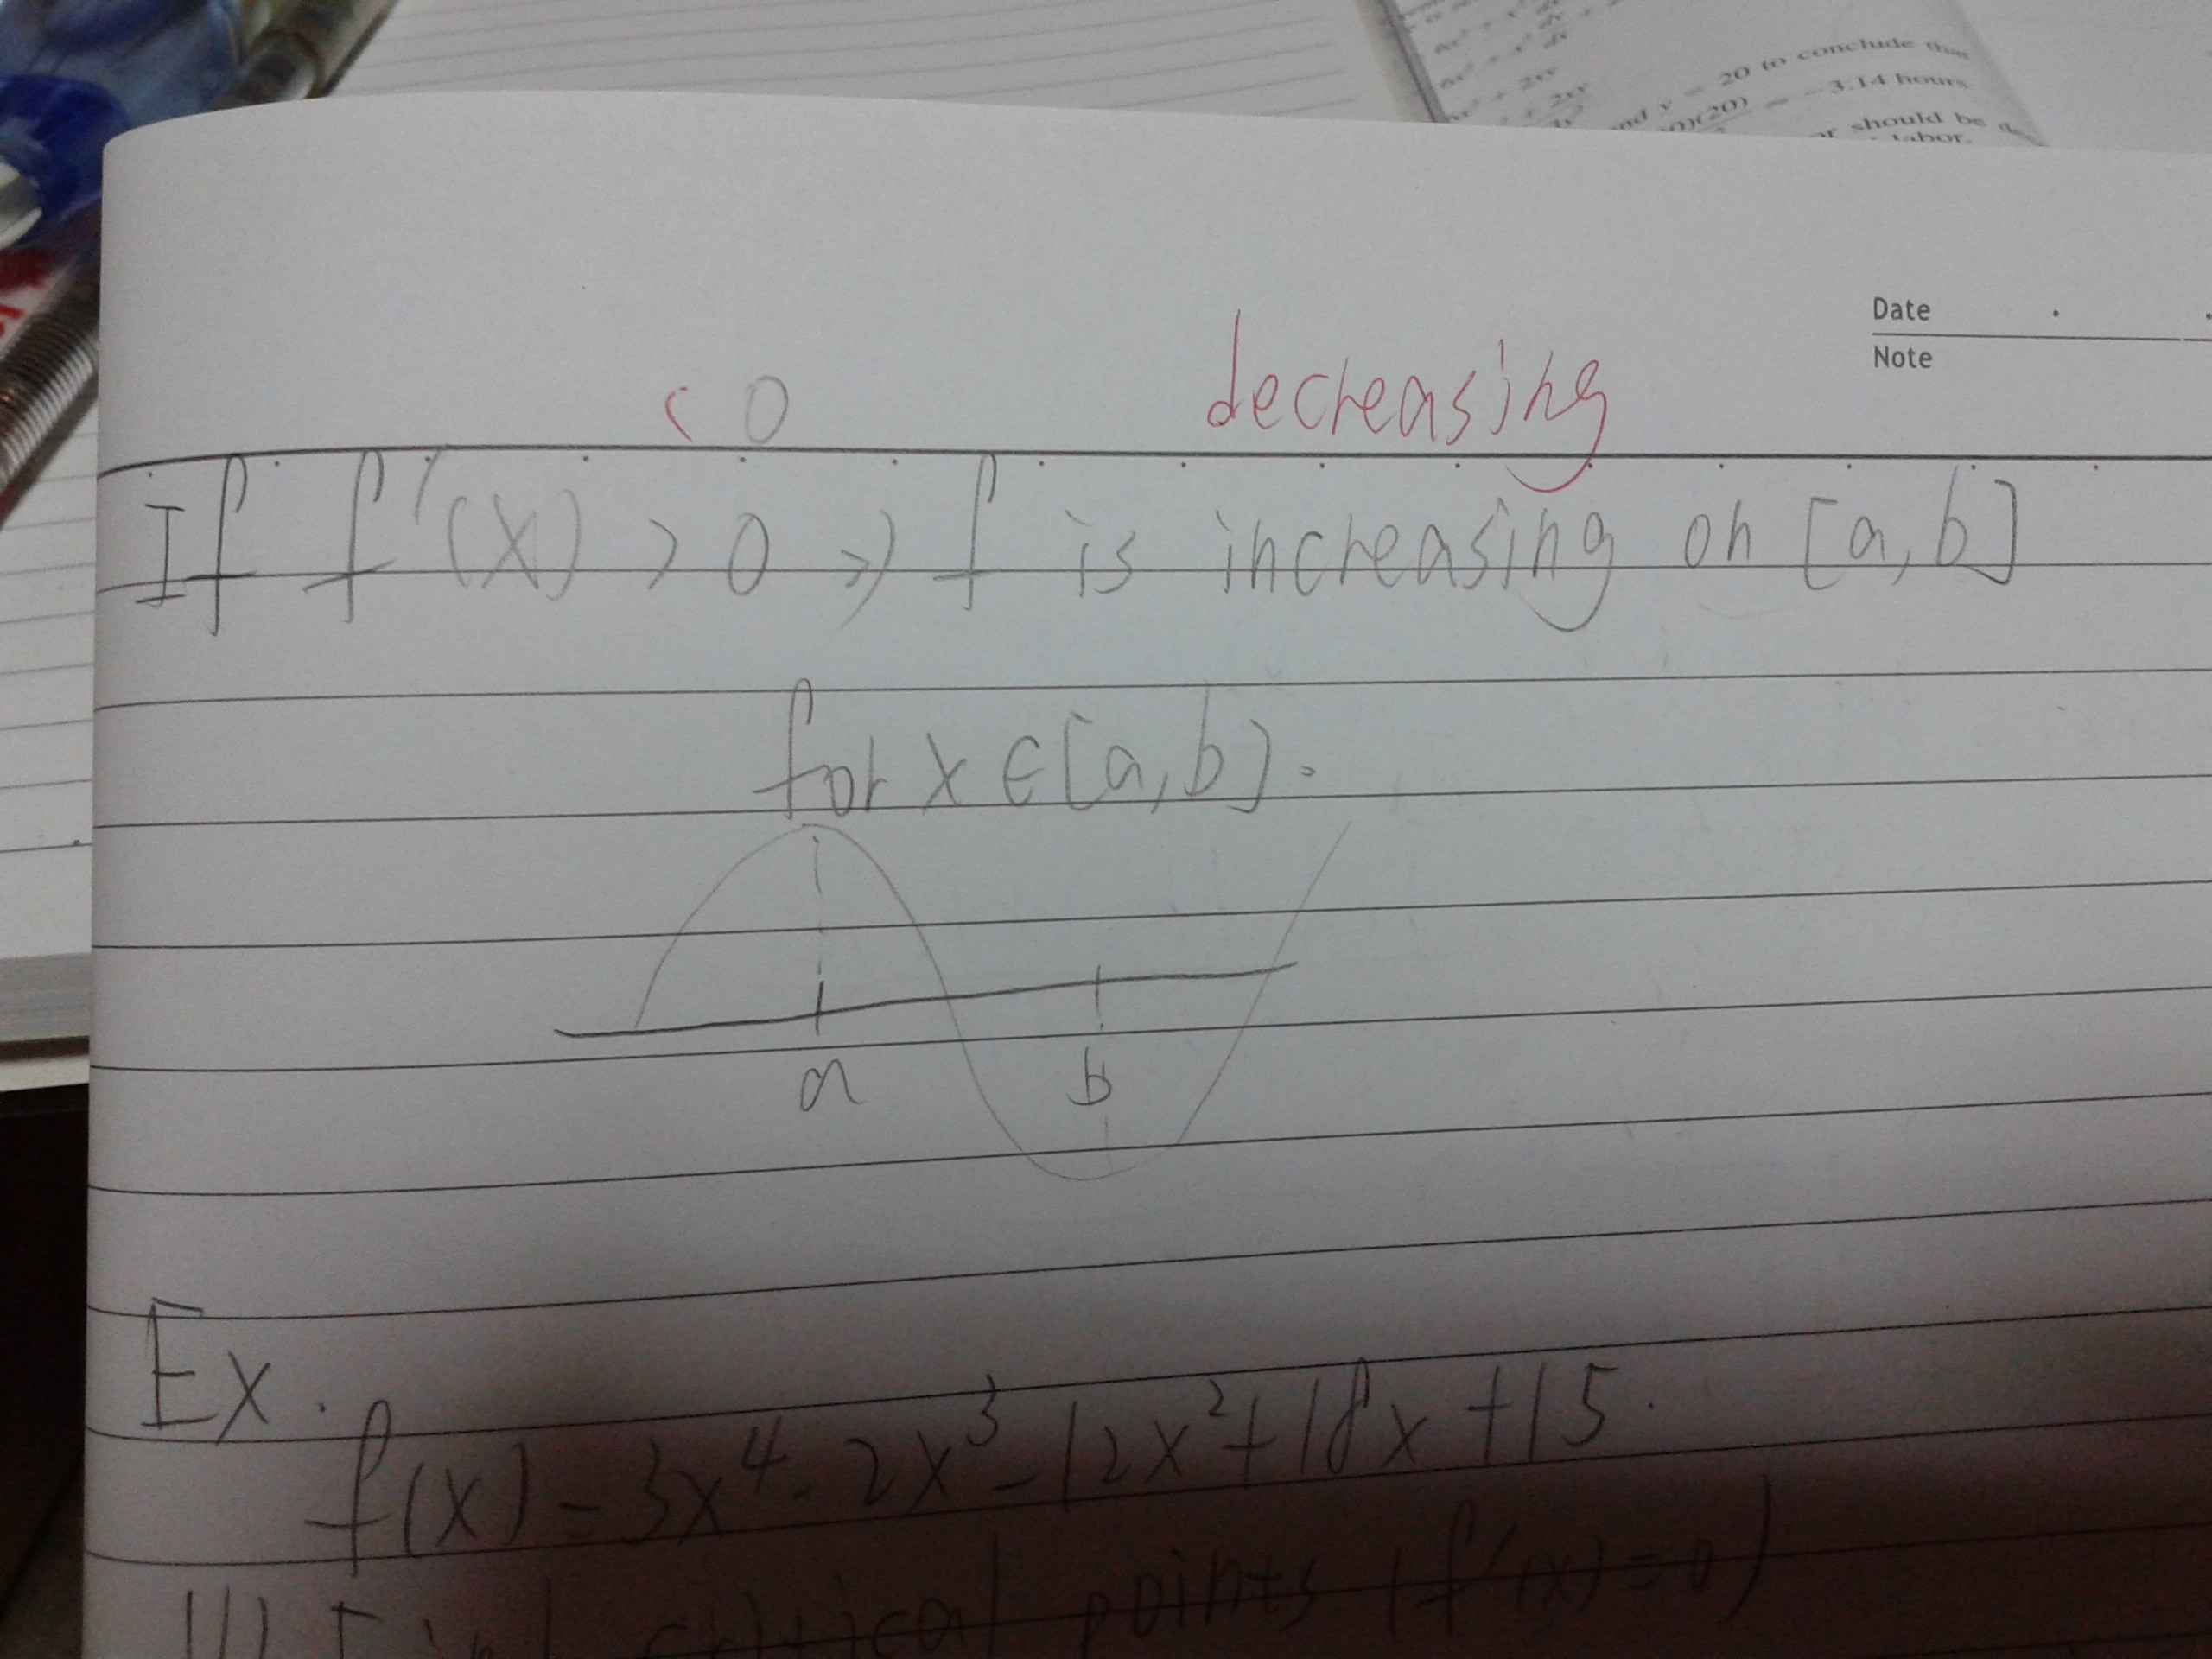 20 to conclude that
3.14 hours
should be
labor.
Date
Note
< 0 decreasing
If f'(x) > 0 ⇒ f is increasing on [a,b]
for x ∈ [a,b].
a b
Ex.
f(x) = 3x⁴ - 2x³ - 12x² + 18x + 15.
(1) Find critical points (f'(x) = 0)